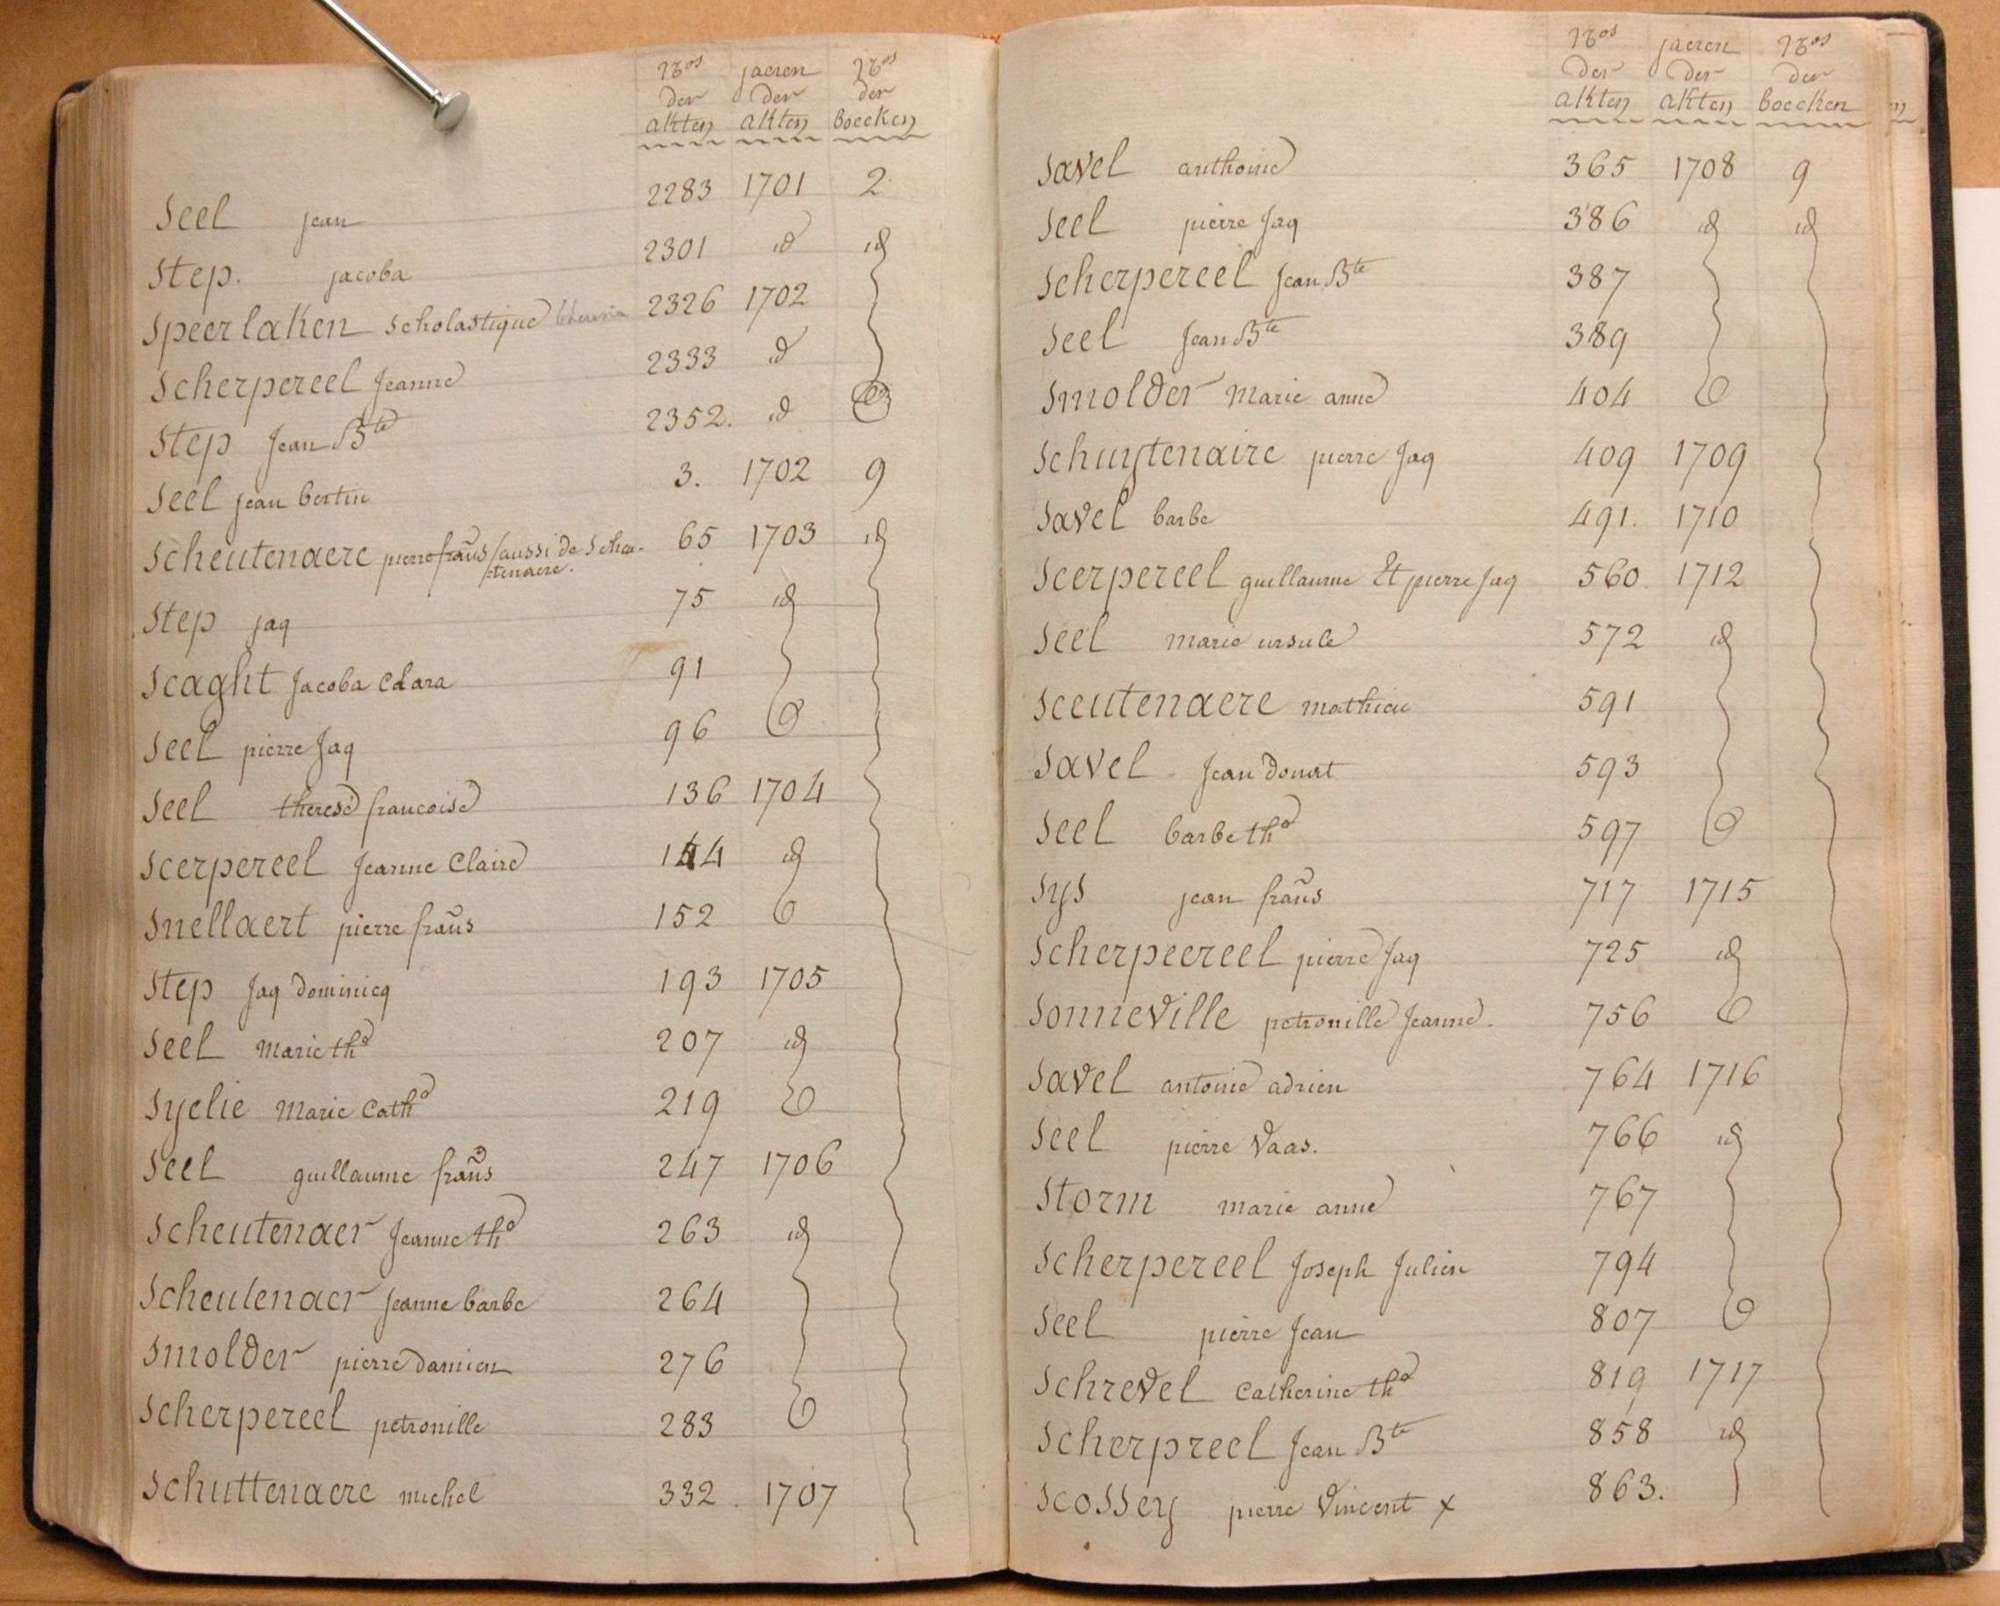 Nros jaeren Nros
der der der
akten akten boecken
Seel jean 2283 1701 2
Step. jacoba 2301 id id
Speerlaken Scholastique theresia 2326 1702
Scherpereel Jeanne 2333 id
Step Jean Bte 2352. id
Seel jean bertin 3. 1702 9
Scheutenaere pierre frañs /aussi de Scheu- 65 1703 id
/tenaere.
Step jaq 75 id
Scaght Jacoba Clara 91
Seel pierre Jaq 96
Seel therese francoise 136 1704
Scerpereel Jeanne Claire 144 id
Snellaert pierre frañs 152
Step Jaq dominicq 193 1705
Seel Marie the 207 id
Syelie Marie Cathe 219
Seel guillaume frañs 247 1706
Scheutenaer Jeanne the 263 id
Scheutenaer Jeanne barbe 264
Smolder pierre damien 276
Scherpereel petronille 283
Schuttenaere michel 332. 1707
Nros jaeren Nros
der der der
akten akten boecken
Savel anthoine 365 1708 9
Seel pierre Jaq 386 id id
Scherpereel Jean Bte 387
Seel Jean Bte 389
Smolder Marie anne 404
Schuytenaire pierre Jaq 409 1709
Savel barbe 491. 1710
Scerpereel guillaume Et pierre Jaq 560. 1712
Seel marie ursule 572 id
Sceutenaere mathieu 591
Savel Jean donat 593
Seel barbe the 597
Sys jean frañs 717 1715
Scherpeereel pierre Jaq 725 id
Sonneville petronille Jeanne. 756
Savel antoine adrien 764 1716
Seel pierre Vaas. 766 id
Storm marie anne 767
Scherpereel Joseph Julien 794
Seel pierre Jean 807
Schrevel Catherine the 819 1717
Scherpreel Jean Bte 858 id
Scossey pierre Vincent x 863.